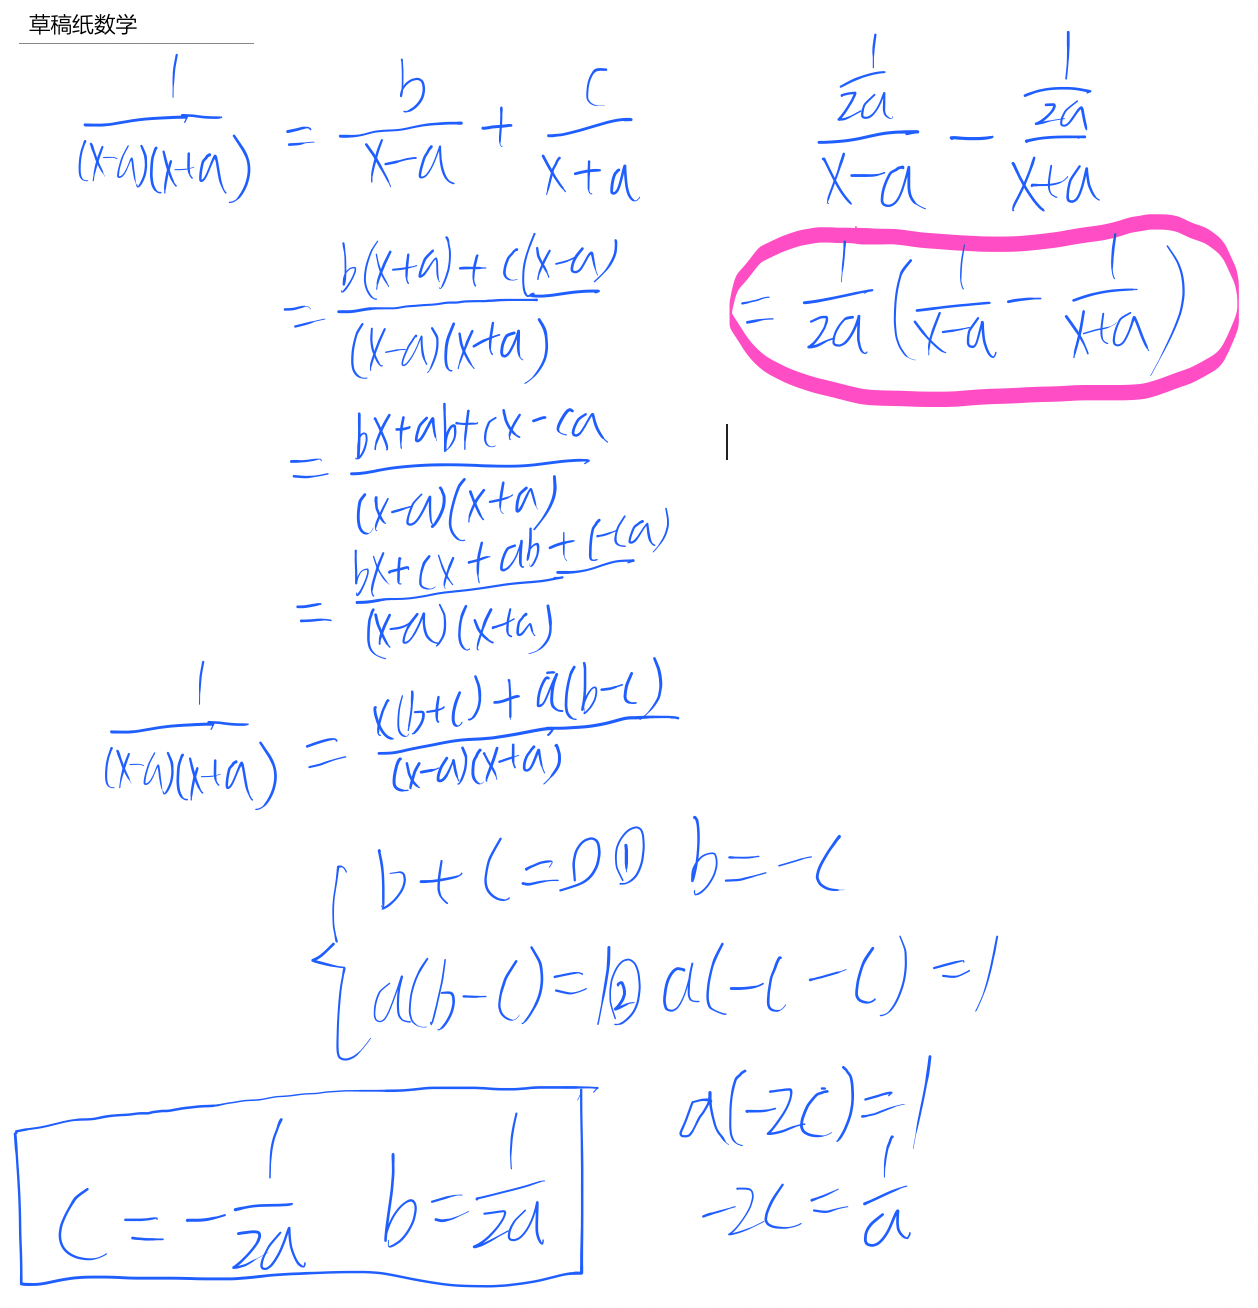 草稿纸数学
1/((x-a)(x+a)) = b/(x-a) + c/(x+a)
= (b(x+a)+c(x-a))/((x-a)(x+a))
= (bx+ab+cx-ca)/((x-a)(x+a))
= (bx+cx+ab+(-ca))/((x-a)(x+a))
1/((x-a)(x+a)) = (x(b+c)+a(b-c))/((x-a)(x+a))
{ b+c=0 ① b=-c
a(b-c)=1 ② a(-c-c)=1
a(-2c)=1
-2c=1/a
c=-1/2a b=1/2a
(1/2a)/(x-a) - (1/2a)/(x+a)
= 1/2a (1/(x-a) - 1/(x+a))